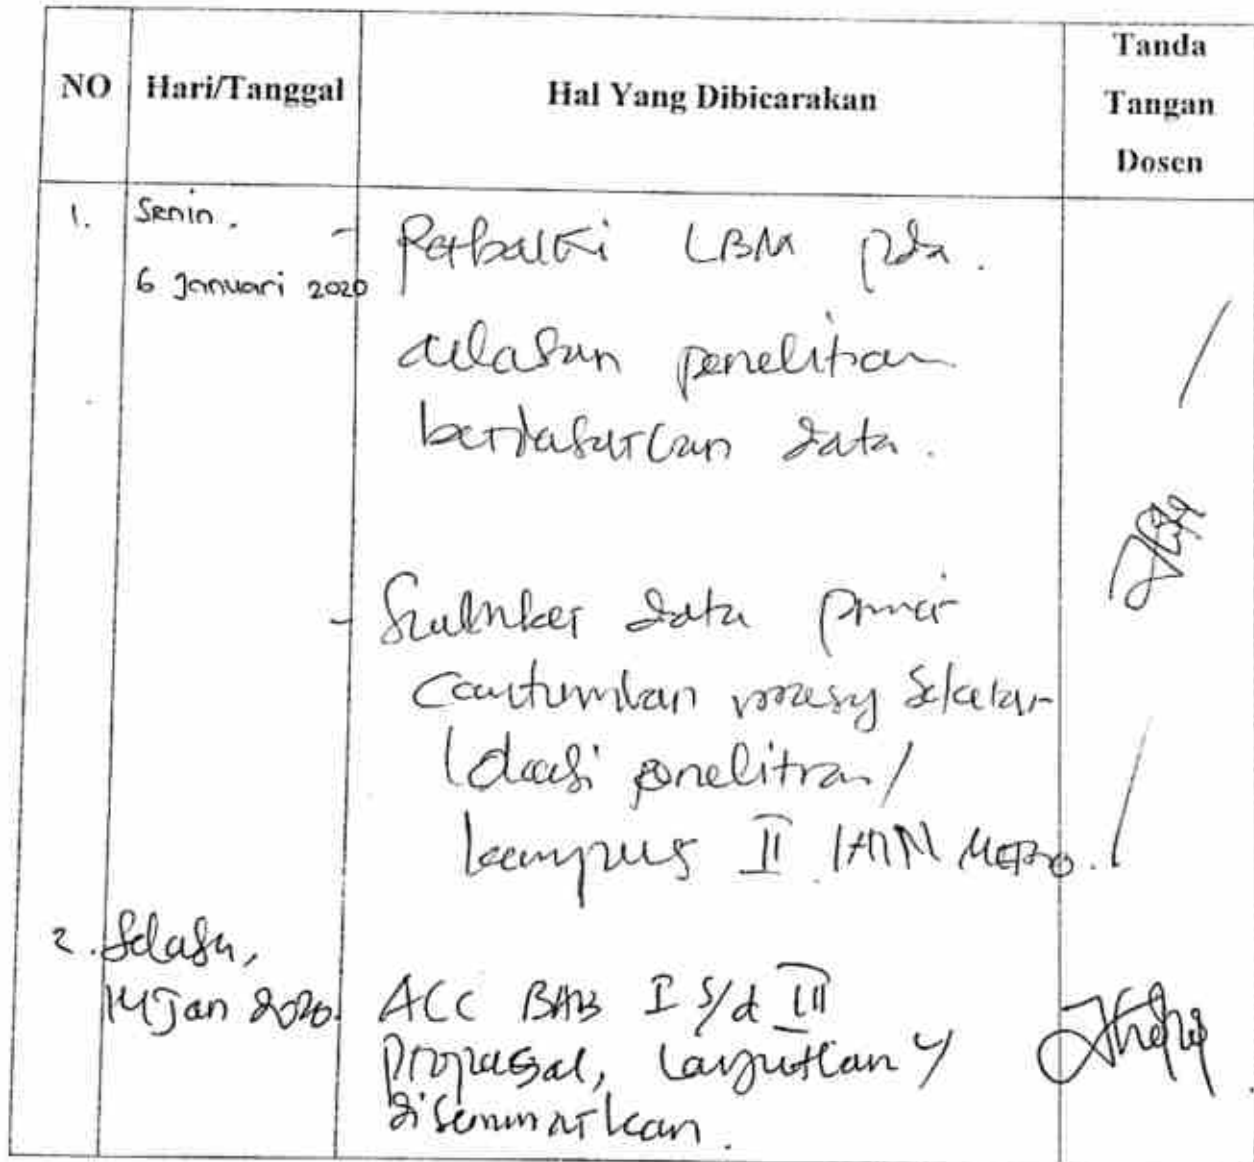 NO Hari/Tanggal Hal Yang Dibicarakan Tanda Tangan Dosen
1. Senin. - Perbaiki LBM pda.
6 Januari 2020
alasan penelitian
berdasarkan data.
- Sumber data primer
Cantumkan masy sekitar
lokasi penelitian/
kampus II IAIN METRO.
2. Selasa,
14 Jan 2020. ACC BAB I s/d III
Proposal, lanjutkan y/
diseminarkan.